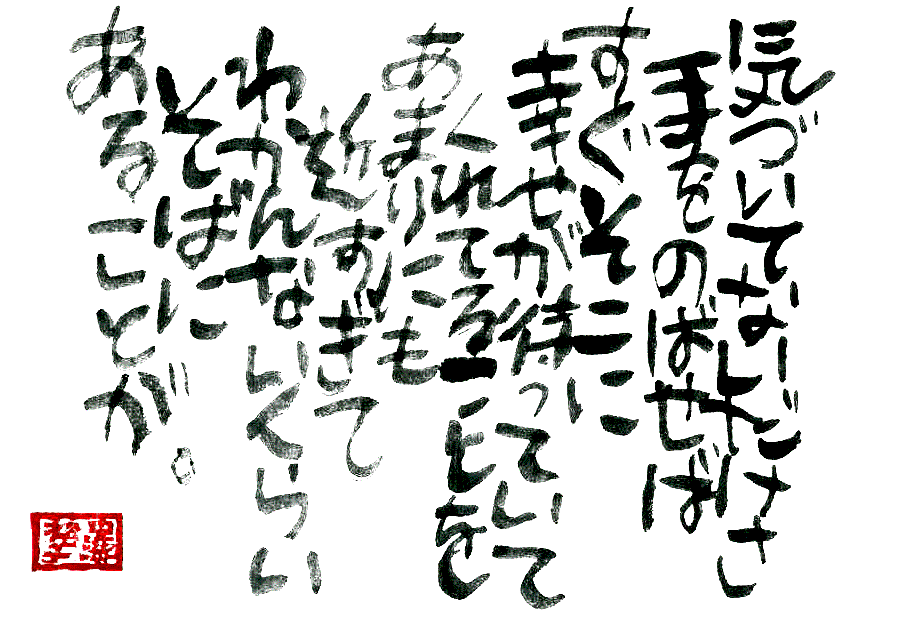 気づいてないだけさ
手をのばせば
すぐそこに
幸せが待っていて
くれてることを
あまりにも
近すぎて
わかんないくらい
そばに
あることが。